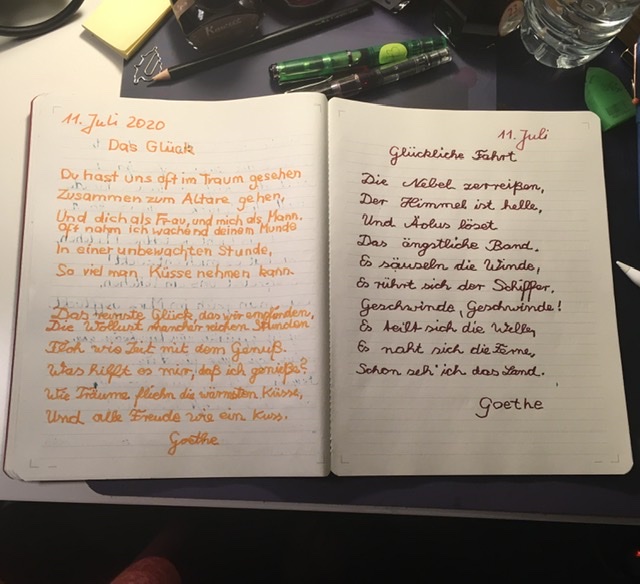 11. Juli 2020
Das Glück
Du hast uns oft im Traum gesehen
Zusammen zum Altare gehen,
Und dich als Frau, und mich als Mann.
Oft nahm ich wachend deinem Munde
In einer unbewachten Stunde,
So viel man Küsse nehmen kann.
Das reinste Glück, das wir empfunden,
Die Wollust mancher reichen Stunden
Floh wie Zeit mit dem Genuß.
Was hilft es mir, daß ich genieße?
Wie Träume fliehn die wärmsten Küsse,
Und alle Freude wie ein Kuss.
Goethe
11. Juli
Glückliche Fahrt
Die Nebel zerreißen,
Der Himmel ist helle,
Und Äolus löset
Das ängstliche Band.
Es säuseln die Winde,
Es rührt sich der Schiffer.
Geschwinde, Geschwinde!
Es teilt sich die Welle,
Es naht sich die Ferne,
Schon seh' ich das Land.
Goethe